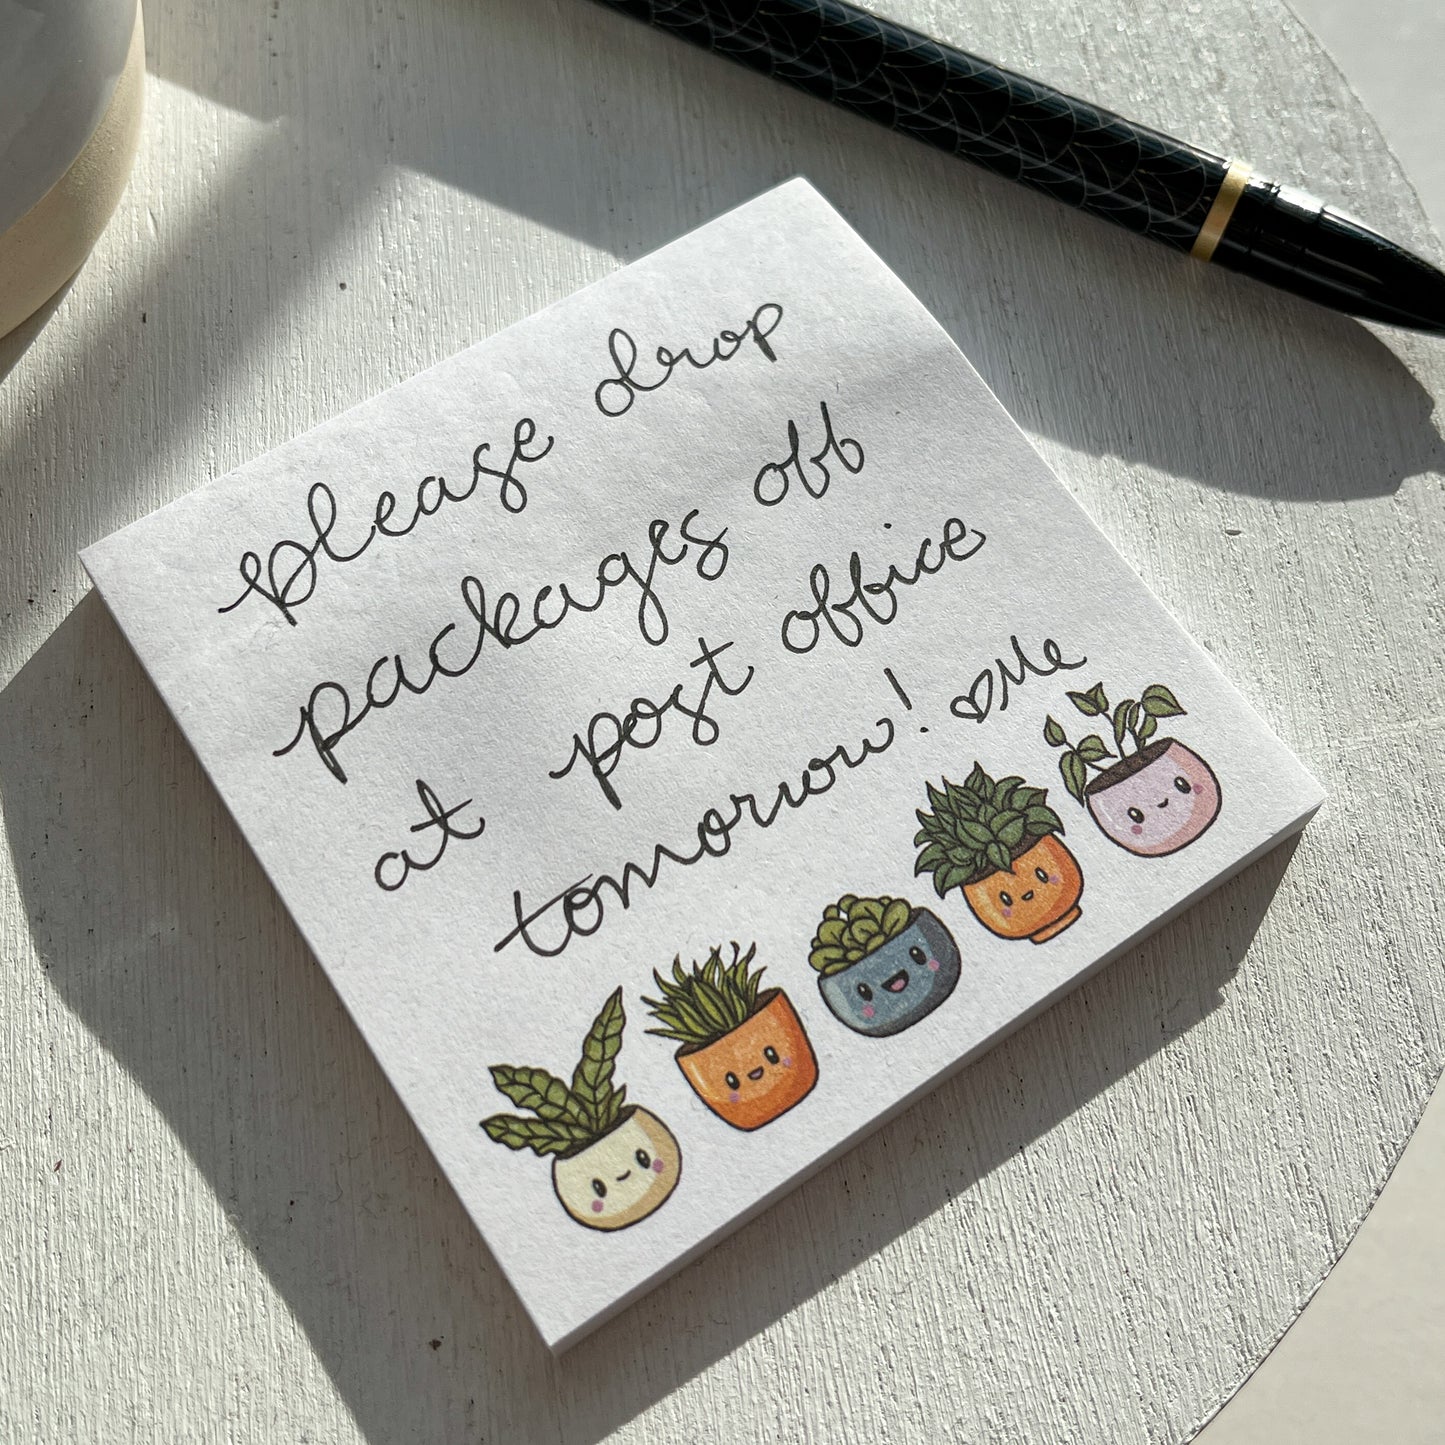 please drop
packages off
at post office
tomorrow! ♡Me